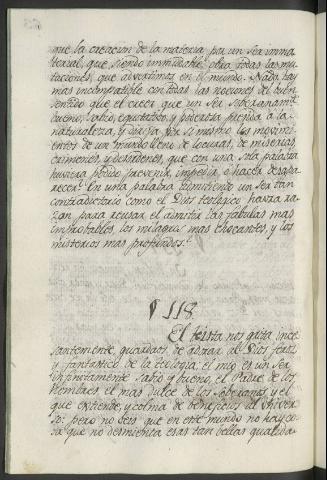 que la creacion de la materia por un Ser inma
terial, que siendo inmudable obra todas las mu
taciones, que advertimos en el mundo. Nada hay
mas incompatible con todas las nociones del buen
sentido que el creer que un Ser Soberanamte
bueno, sabio, equitativo, y poderoso presida a la
naturaleza, y dirija por si mismo los movimi
entos de un mundo lleno de locuras, de miserias,
crimenes, y desordenes, que con una sola palabra
huviera podido prevenir, impedir, o hacer desapa
recer. En una palabra admitiendo un Ser tan
contradictorio como el Dios teologico havra ra
zon para acusar el admitir las fabulas mas
improbables, los milagros mas chocantes, y los
misterios mas profundos.
¶ 118.
El teista nos grita ince
santemente, guardaos de adorar al Dios feroz
y fantastico de la teologia; el mio es un Ser
infinitamente sabio y bueno, el Padre de los
hombres, el mas dulce de los Soberanos, y el
que extiende, y colma de beneficios al Univer
so: pero no veis que en este mundo no hay co
sa que no desmienta esas tan bellas qualida-